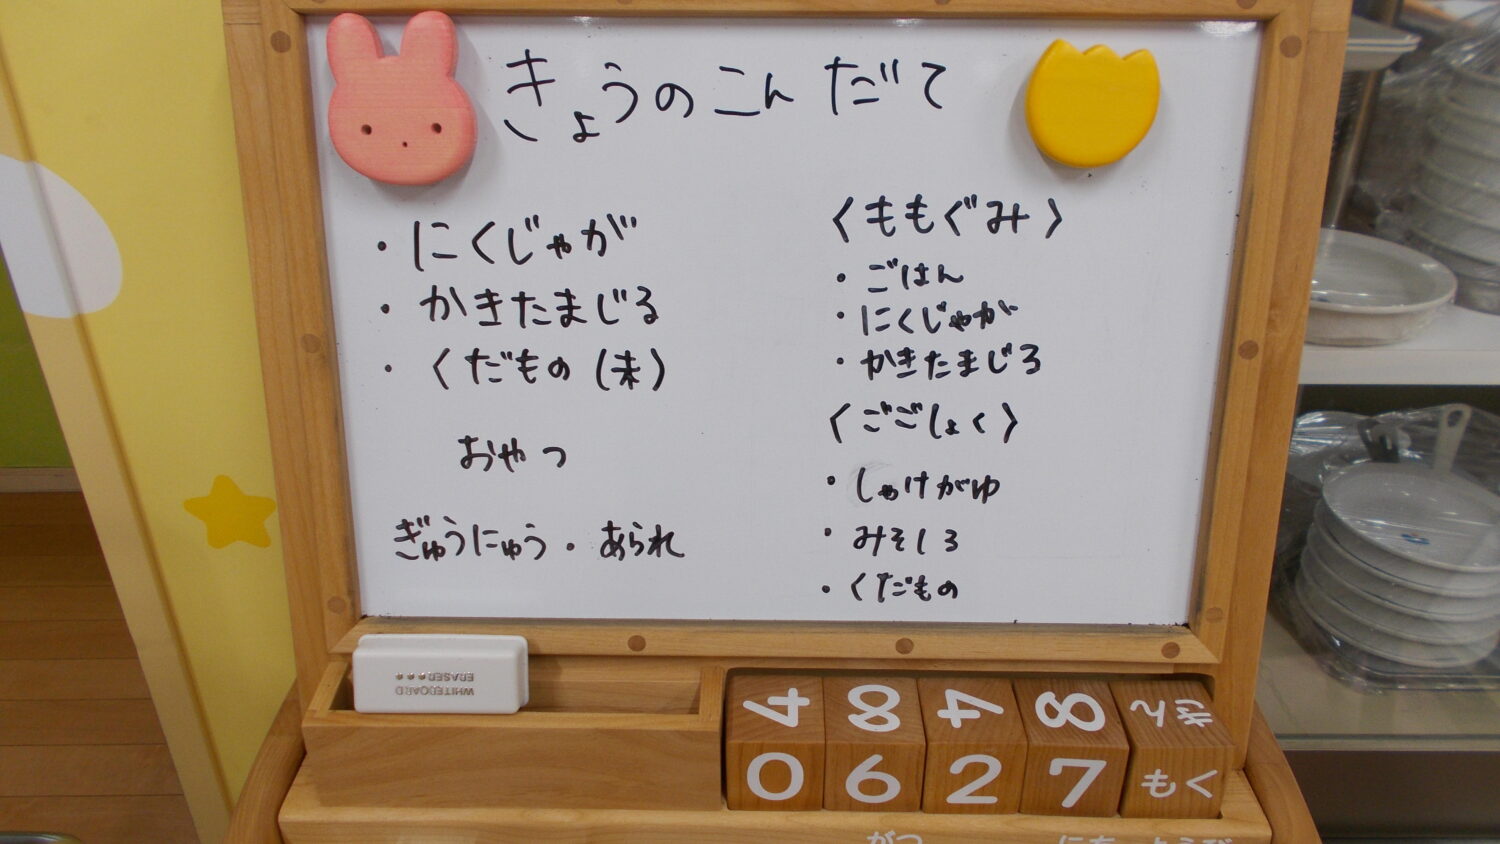 きょうのこんだて
・にくじゃが
・かきたまじる
・くだもの(未)
おやつ
ぎゅうにゅう・あられ
〈ももぐみ〉
・ごはん
・にくじゃが
・かきたまじる
〈ごごしょく〉
・しゃけがゆ
・みそしる
・くだもの
WHITEBOARD
ERASER
4 8 4 8 きん
0 6 2 7 もく
がつ にち ようび